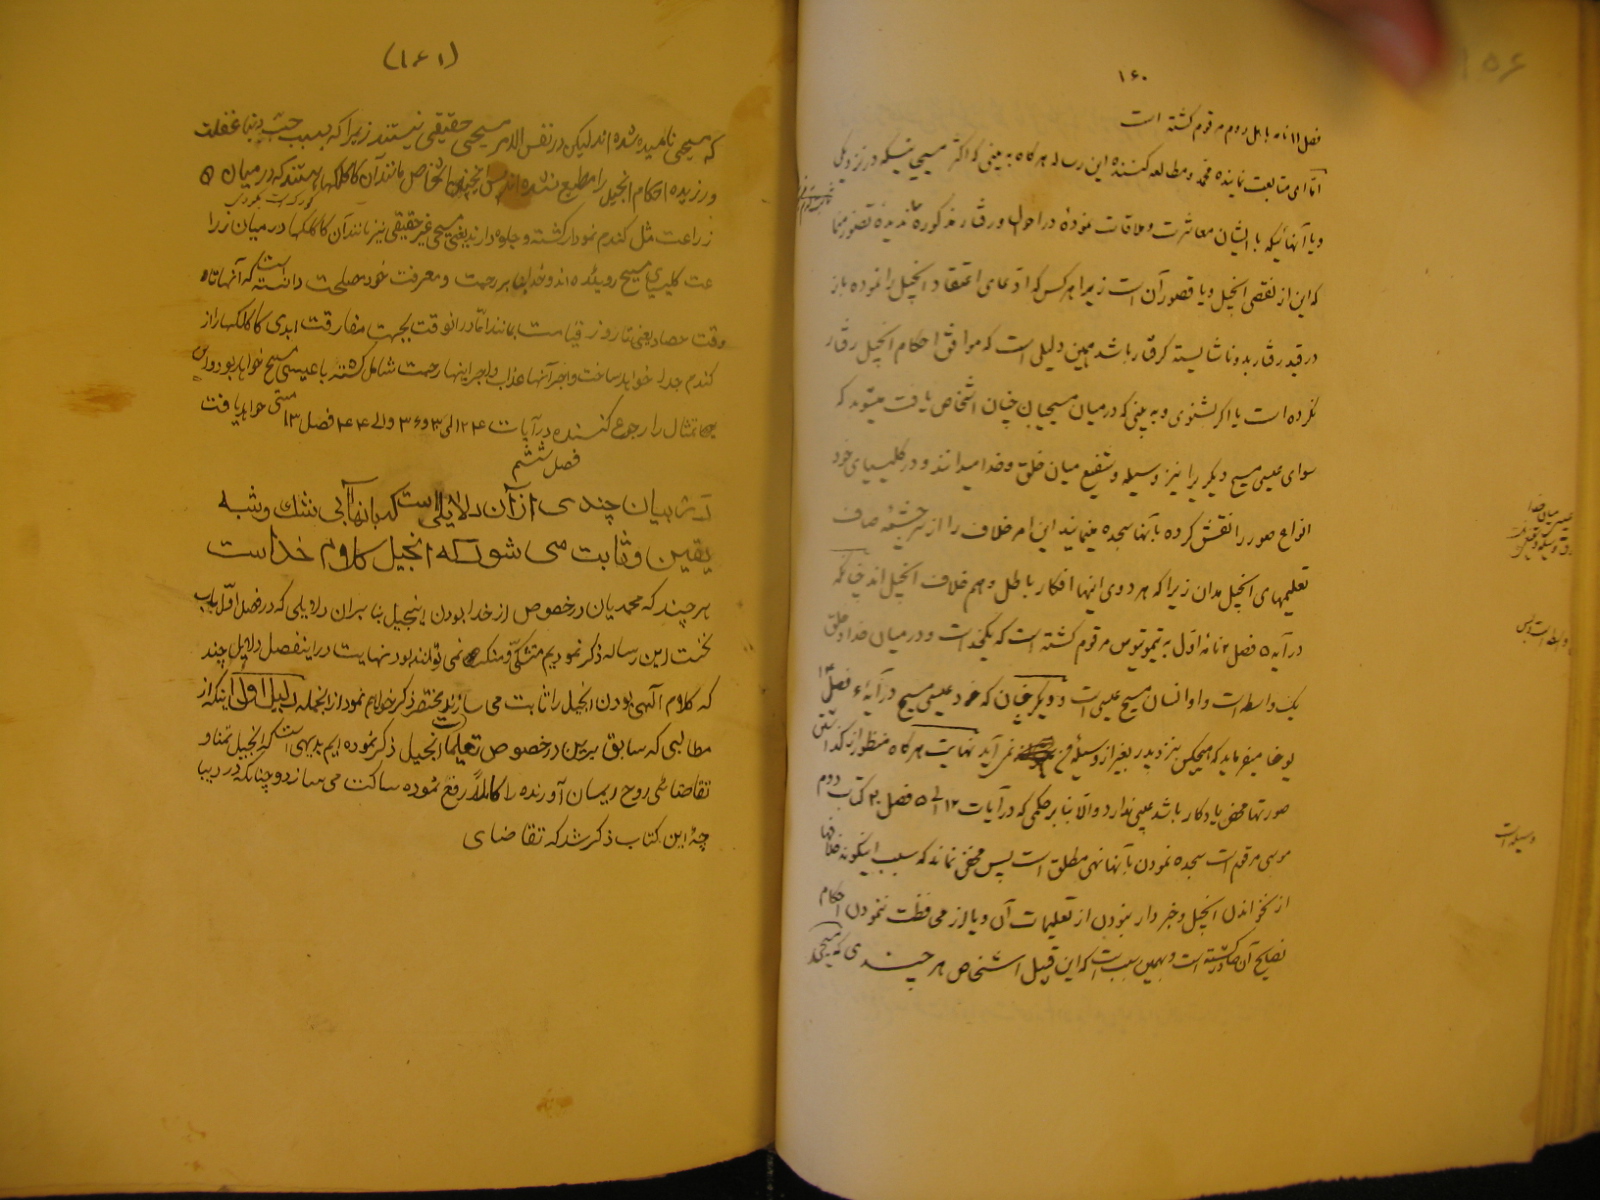 ۱۶۰
فصل ۱۱ نامه باهل روم مرقوم گشته است
امّا ای متابعت نماینده محمّد و مطالعه کننده این رساله هر گاه به بینی که اکثر مسیحی تیکه در نزدیکی
و یا آنهائیکه با ایشان معاشرت و ملاقات نمودهٔ در احوال و رفتار مذکوره مانده تصوّر منما
که این از نقص انجیل و یا قصور آن است زیرا هر کس که ادّعای اعتقاد انجیل را نموده باز
در قید رفتار بد و ناشایسته گرفتار باشد همین دلیلی است که موافق احکام انجیل رفتار
نکرده است یا اگر بشنوی و به بینی که در میان مسیحیان چنان اشخاص یافت میشوند که
سوای عیسی مسیح دیگری را نیز وسیله و شفیع میان خلق و خدا میدانند و در کلیسیای خود
انواع صور را نقش کرده بآنها سجده مینمایند این امر خلاف را از سر چشمه صاف
تعلیمهای انجیل مدان زیرا که هر دوی اینها افکار باطل و هم خلاف انجیل اند چنانکه
در آیه ۵ فصل ۲ نامه اوّل به تیموتیوس مرقوم گشته است که یکخداست و در میان خدا و خلق
یک واسطه است و او انسان مسیح عیسی است و دیگر چنان که خود عیسی مسیح در آیه ۶ فصل ۱۴
یوحنا میفرماید که هیچکس بنزد پدر بغیر از وسیلهٔ من نمی آید نهایت هر گاه منظور از گذاشتن
صورتها محض یادگار باشد عیبی ندارد و الّا بنا بر حکمی که در آیات ۲ الی ۵ فصل ۲۰ کتاب دوم
موسی مرقوم است سجده نمودن بآنها نهی مطلق است پس مخفی نماند که سبب اینگونه خلافها
از نخواندن انجیل و خبردار نبودن از تعلیمات آن و یا از محافظت ننمودن احکام
نصایح آن صادر گشته است و بهمین سبب است که این قبیل اشخاص هر چندی که مسیحی
وسیله است
(۱۶۱)
که مسیحی نامیده شده اند لیکن در نفس الامر مسیحی حقیقی نیستند زیرا که بسبب حبّ دنیا غفلت
ورزیده احکام انجیل را مطیع نشده اند پس چنین اشخاص مانند آن کاکلکها هستند که در میان
زراعت مثل کندم نمودار کشته و جلوه دارند یعنی مسیحی غیر حقیقی نیز مانند آن کاکلکها در میان زرا
عت کلیسای مسیح روئیده اند و خدا بنا بر رحمت و معرفت خود مصلحت دانسته است که آنها تا
وقت حصاد یعنی تا روز قیامت بمانند امّا در انوقت بجهت مفارقت ابدی کاکلکها را از
کندم جدا خواهد ساخت و اجر آنها عذاب و اجر اینها رحمت شامل کشته با عیسی مسیح خواهد بود و این
تمثال را رجوع کننده در آیات ۲۴ الی ۳۰ و ۳۶ الی ۴۳ فصل ۱۳ متی خواهد یافت
فصل ششم
در بیان چندی از آن دلایلی است که بانها بی شک و شبه
یقین و ثابت می شود که انجیل کلام خداست
هر چند که محمدیان در خصوص از خدا بودن انجیل بنا بر ان دلایلی که در فصل اوّل باب
نخست این رساله ذکر نمودیم متشکّی و منکر نمی توانند بود نهایت در اینفصل دلایل چند
که کلام آلهی بودن انجیل را ثابت می سازند مختصر ذکر خواهیم نمود از انجمله دلیل اول اینکه از
مطالبی که سابق برین در خصوص تعلیمات انجیل ذکر نموده ایم بدیهی است که انجیل تمنا و
تقاضاهای روح ایمان آورنده را کاملاً رفع نموده ساکت می سازد و چنانکه در دیبا
چهٔ این کتاب ذکر شد که تقاضای